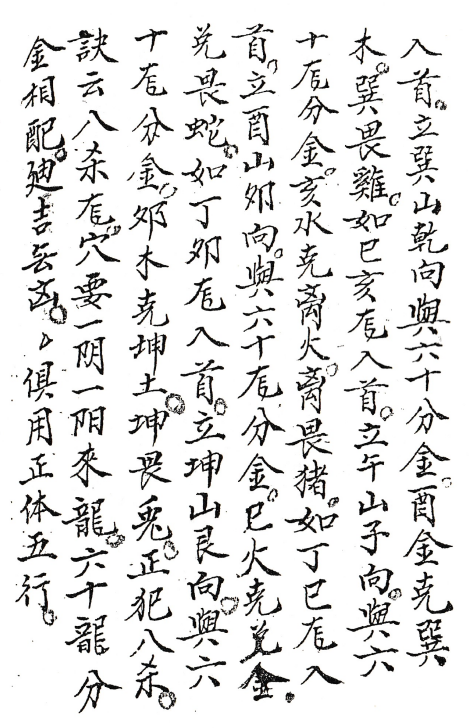 入首。立巽山乾向。與六十分金。酉金克巽
木。巽畏雞。如巳亥竜入首。立午山子向。與六
十竜分金。亥水克离火。离畏猪。如丁巳竜入
首。立酉山卯向。與六十竜分金。巳火克兑金。
兑畏蛇。如丁卯竜入首。立坤山艮向。與六
十竜分金。卯木克坤土。坤畏兎。正犯八杀。
訣云八杀竜穴。要一阴一阳來龍。六十龍分
金相配。廼吉无凶。〻俱用正体五行。